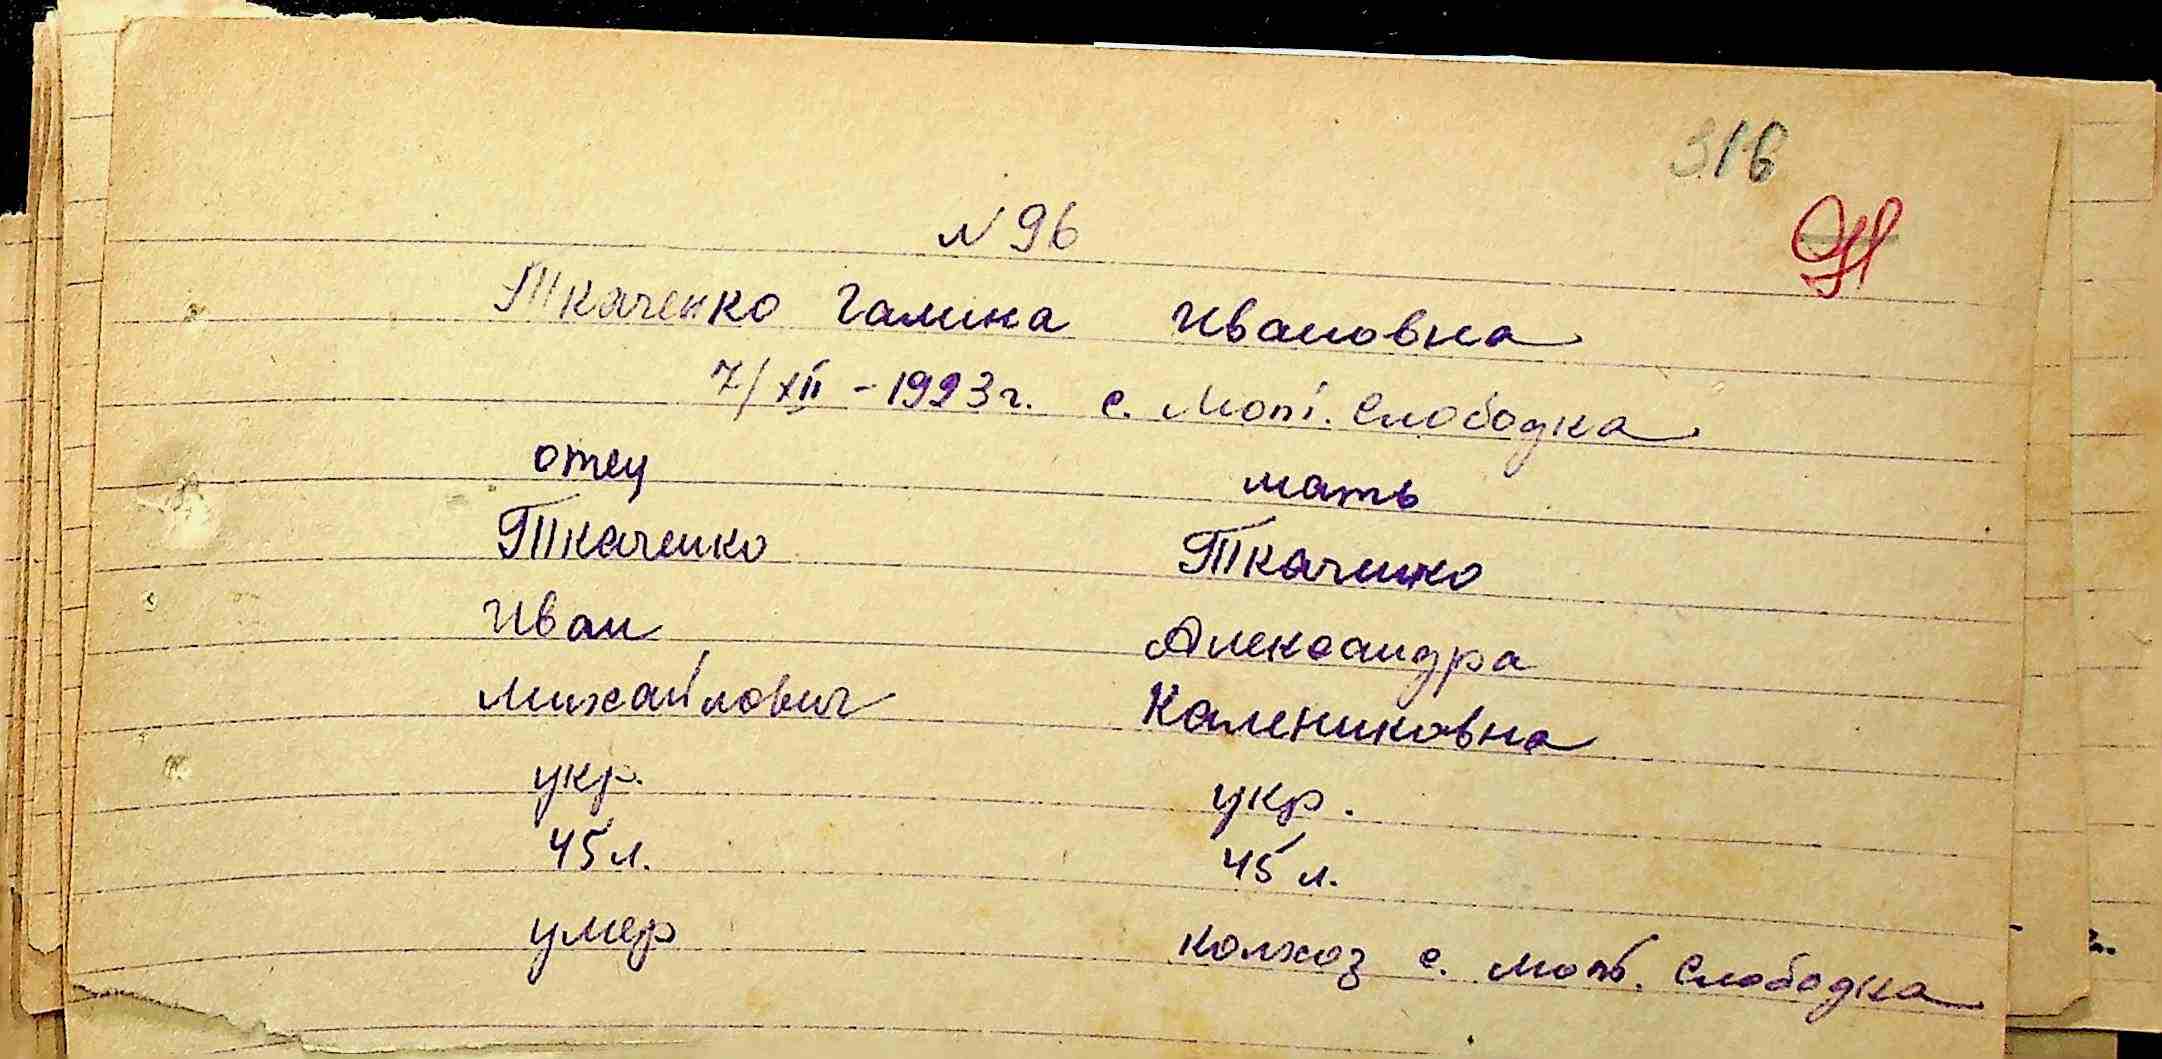 318
N 96
Ткаченко Галина Ивановна
7/XII - 1923 г. с. Мот. Слободка
отец мать
Ткаченко Ткаченко
Иван Александра
Михайлович Калениковна
укр. укр.
45 л. 45 л.
умер колхоз с. Мот. Слободка